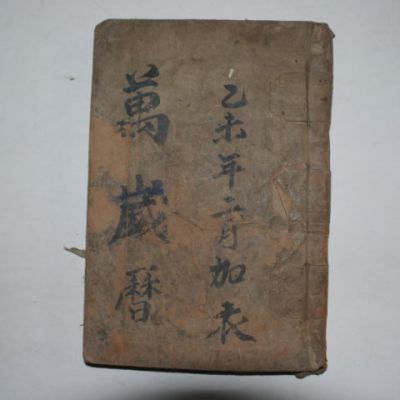 乙未年二月加衣
萬歲曆